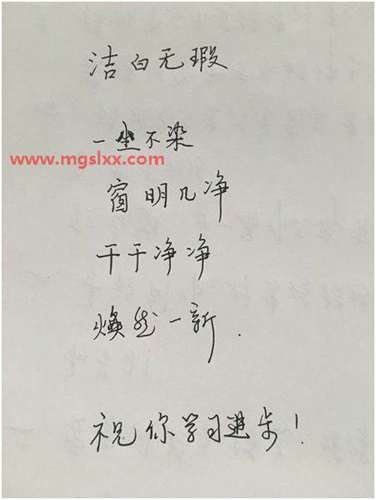 洁白无瑕
一尘不染
www.mgslxx.com
窗明几净
干干净净
焕然一新.
祝你学习进步!